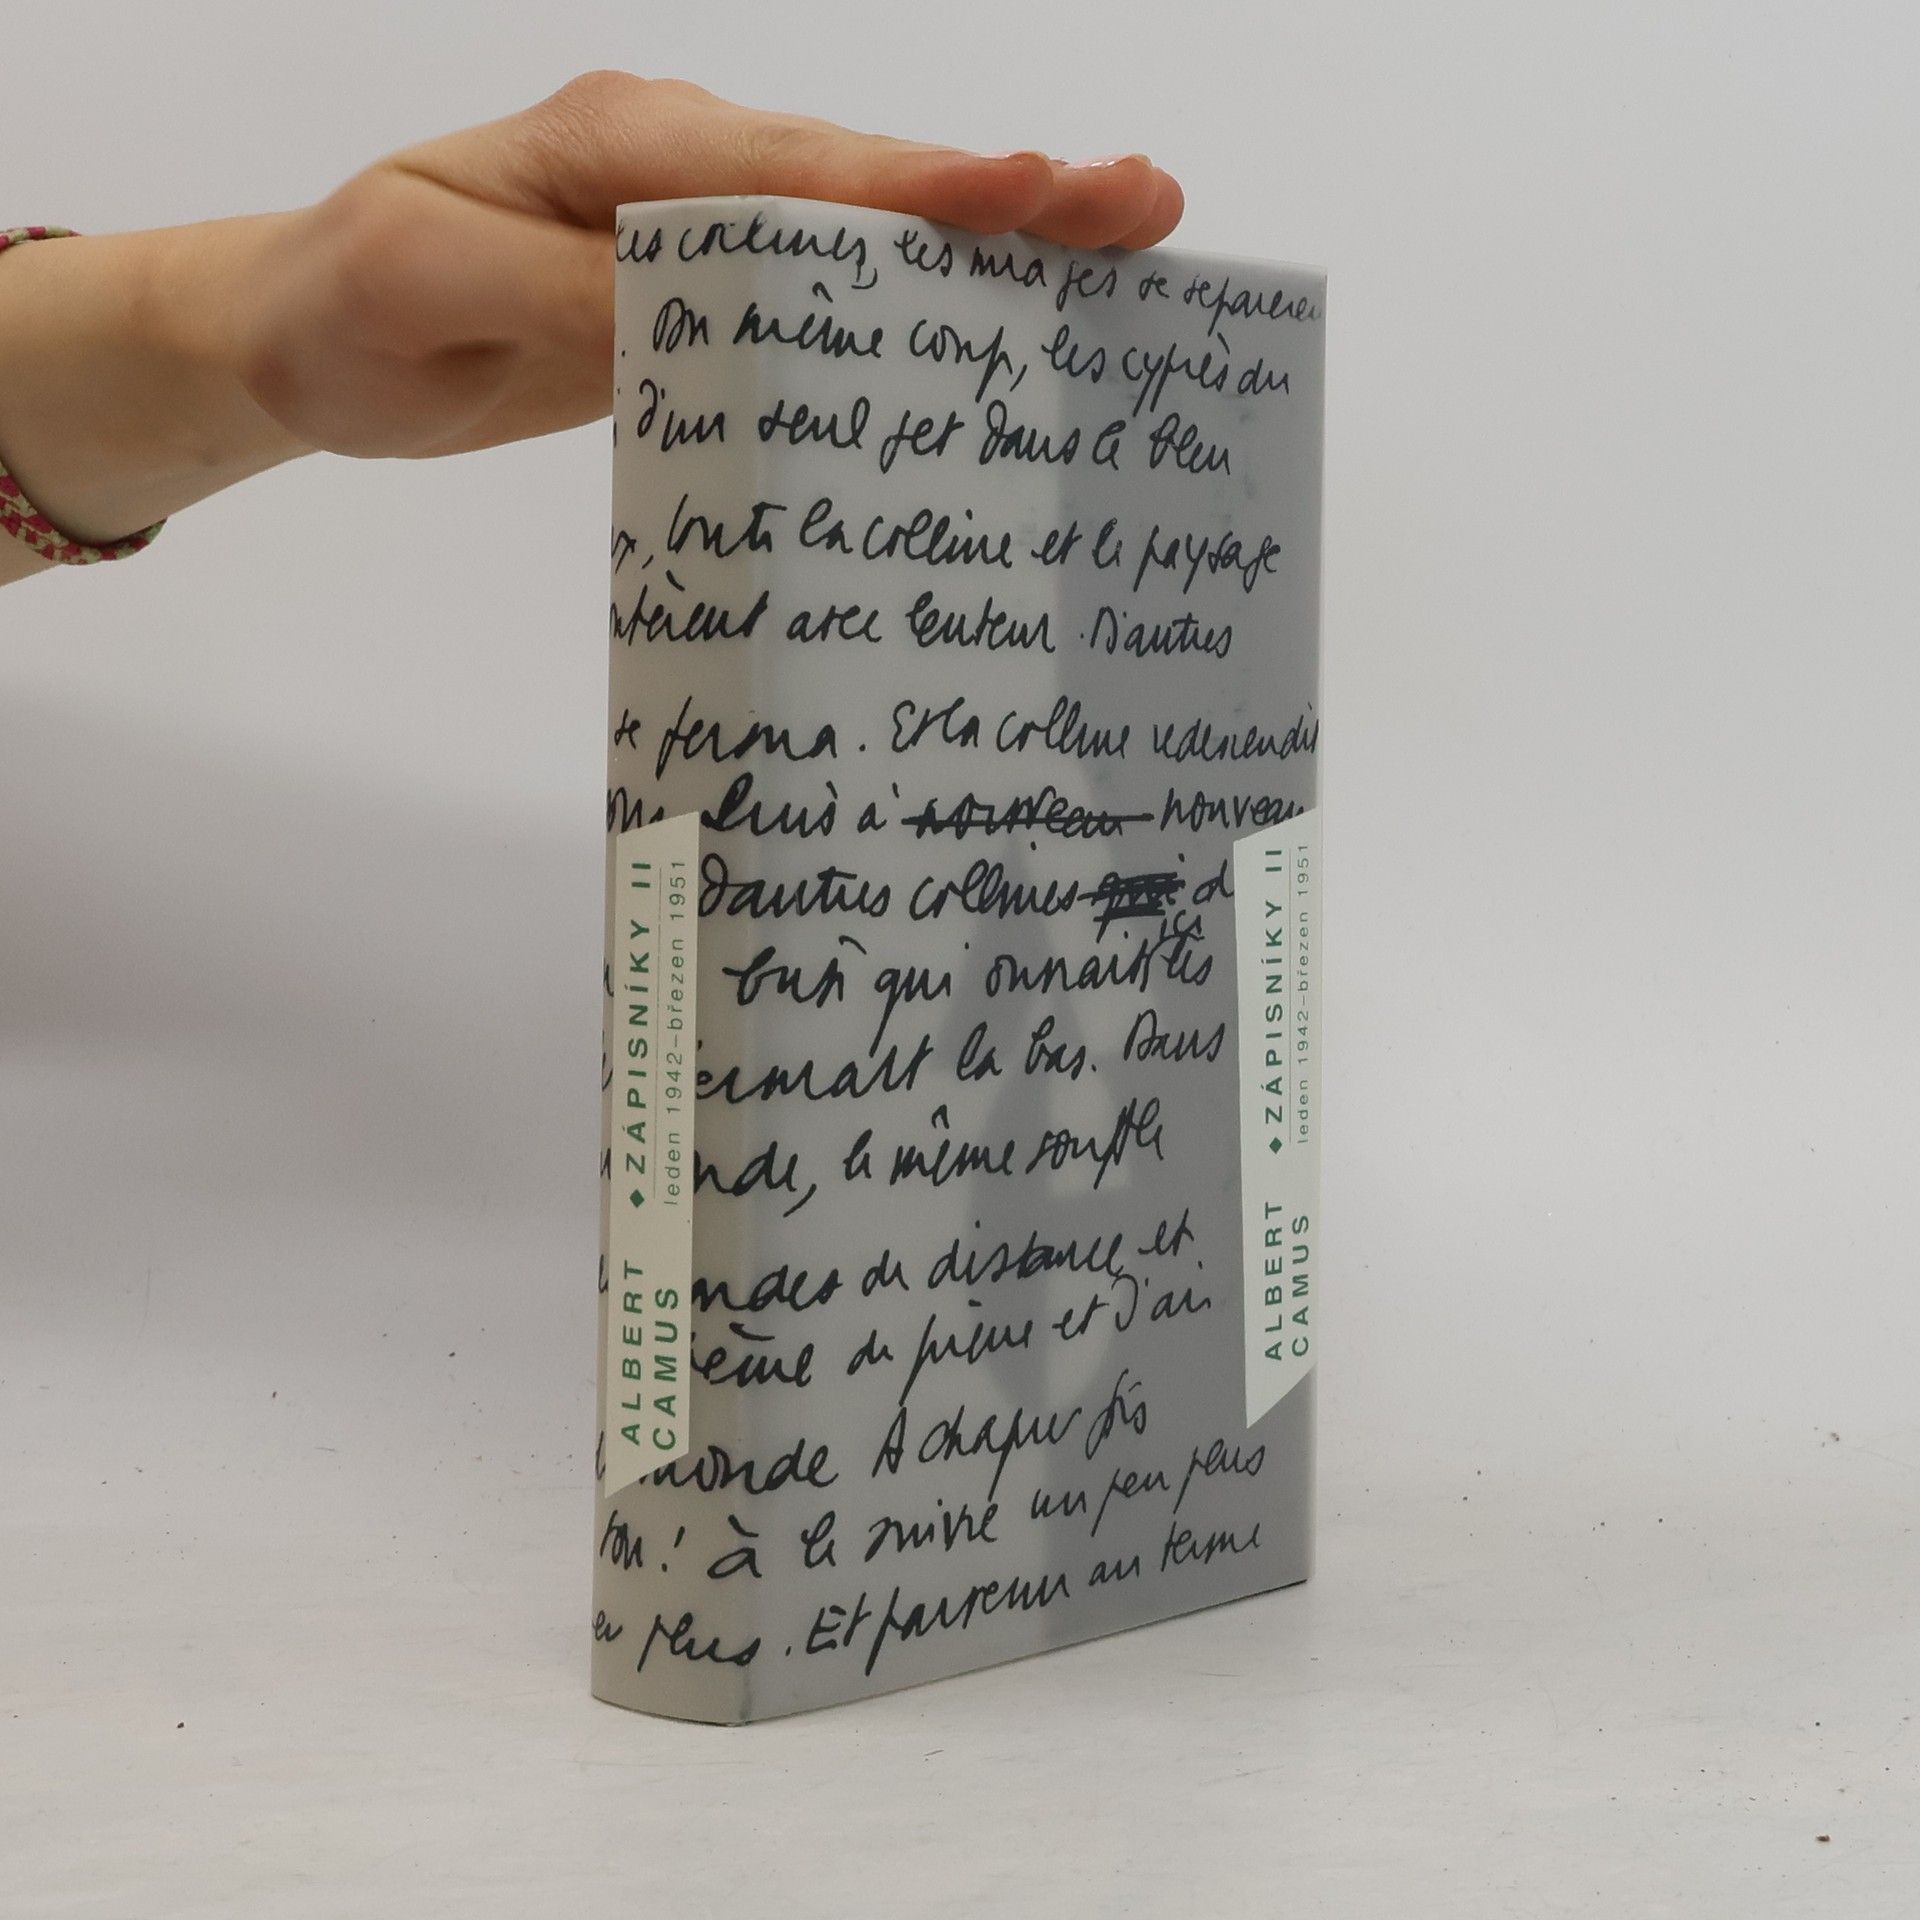 les collines, les nuages se séparèren
. Du même coup, les cyprès du
d'un seul jet dans le bleu
, toute la colline et le paysage
ntèrent avec lenteur. D'autres
se ferma. Et la colline redescendit
Puis à nouveau nouveau
d'autres collines qui d
ici
qui les
ermait là bas. Dans
nde, le même souffle
ndes de distance et
ème de pierre et d'air
monde A chaque fois
! à le suivre un peu plus
plus. Et parvenu au terme
ALBERT CAMUS ◆ ZÁPISNÍKY II
leden 1942–březen 1951
ALBERT CAMUS ◆ ZÁPISNÍKY II
leden 1942–březen 1951